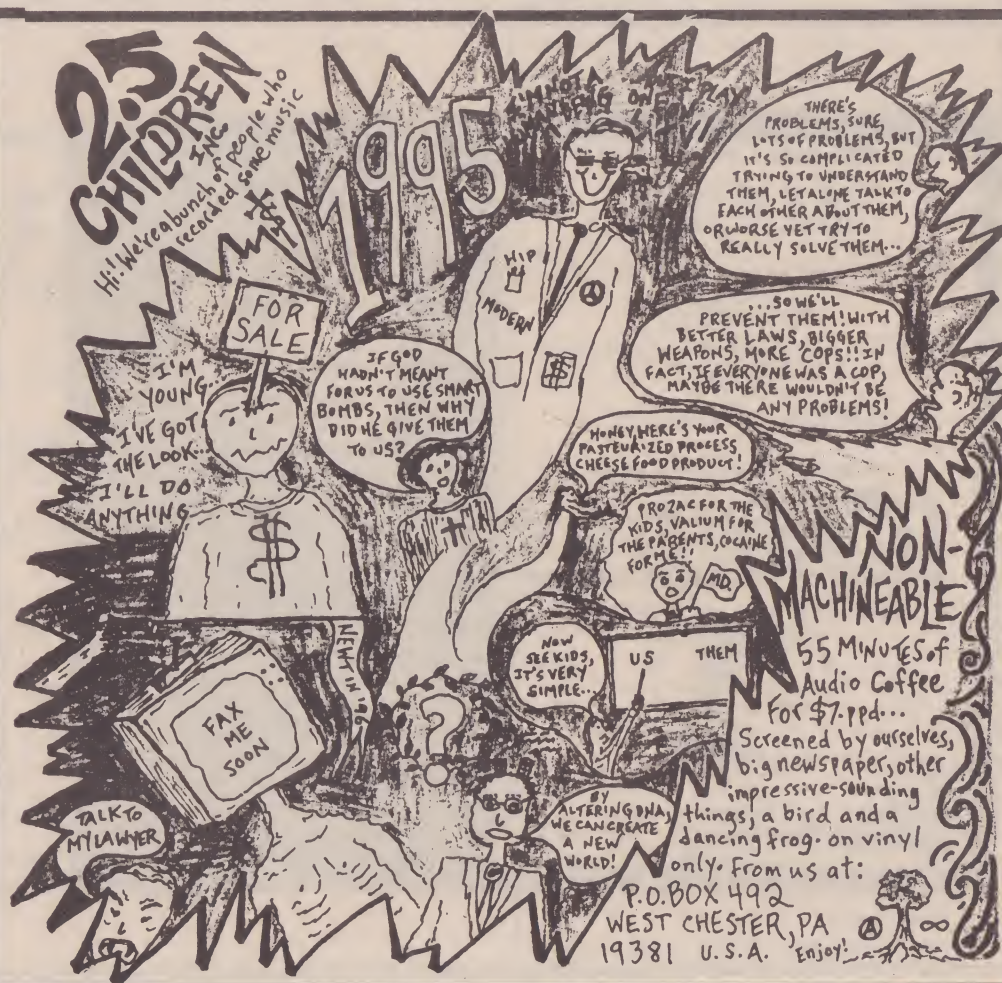 2.5
CHILDREN
INC.
Hi! We're a bunch of people who
recorded some music
1995
I'M NOT A
ON
PLAY
ON T.V.!
THERE'S
PROBLEMS, SURE
LOTS OF PROBLEMS, BUT
IT'S SO COMPLICATED
TRYING TO UNDERSTAND
THEM, LET ALONE TALK TO
EACH OTHER ABOUT THEM,
OR WORSE YET TRY TO
REALLY SOLVE THEM...
HIP
4
MODERN
$
...SO WE'LL
PREVENT THEM! WITH
BETTER LAWS, BIGGER
WEAPONS, MORE COPS!! IN
FACT, IF EVERYONE WAS A COP,
MAYBE THERE WOULDN'T BE
ANY PROBLEMS!
FOR
SALE
I'M
YOUNG
I'VE GOT
THE LOOK..
I'LL DO
ANYTHING
$
IF GOD
HADN'T MEANT
FOR US TO USE SMART
BOMBS, THEN WHY
DID HE GIVE THEM
TO US?
HONEY, HERE'S YOUR
PASTEURIZED PROCESS,
CHEESE FOOD PRODUCT!
PROZAC FOR THE
KIDS, VALIUM FOR
THE PARENTS, COCAINE
FOR ME!!
MD.
NOW
SEE KIDS,
IT'S VERY
SIMPLE..
US THEM
NEWT IN '96
FAX
ME
SOON
?
TALK TO
MY LAWYER
BY
ALTERING DNA,
WE CAN CREATE
A NEW
WORLD!
NON-
MACHINEABLE
55 MINUTES of
Audio Coffee
For $7. ppd...
Screened by ourselves,
big newspaper, other
impressive-sounding
things, a bird and a
dancing frog. on vinyl
only. From us at:
P.O. BOX 492
WEST CHESTER, PA
19381 U.S.A. Enjoy!
A ∞